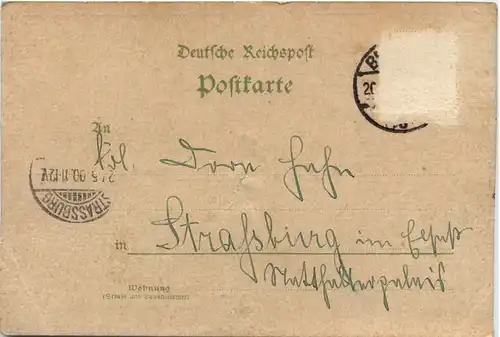 Deutsche Reichspost
Postkarte
An
Frl. Dora Hahn
in Straßburg im Elsaß
Statthalterpalais
Wohnung
(Straße und Hausnummer)
STRASSBURG
20